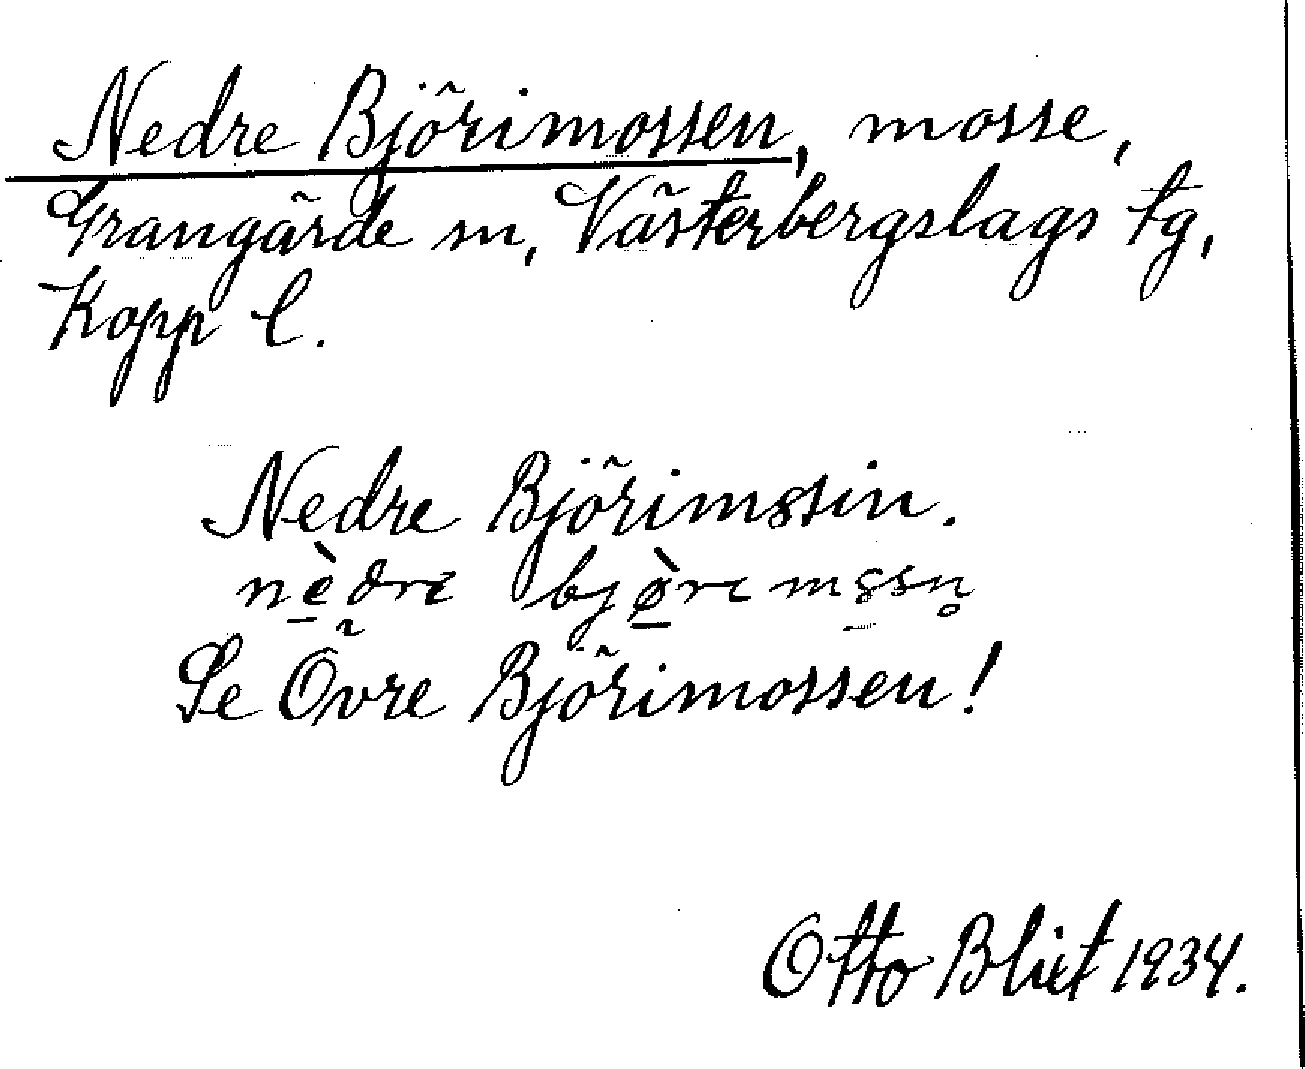 Nedre Björimossen, mosse,
Grangärde sn, Västerbergslags tg,
Kopp l.
Nedre Björimssin.
nèdre bjørımssn̥
Se Övre Björimossen!
Otto Blixt 1934.